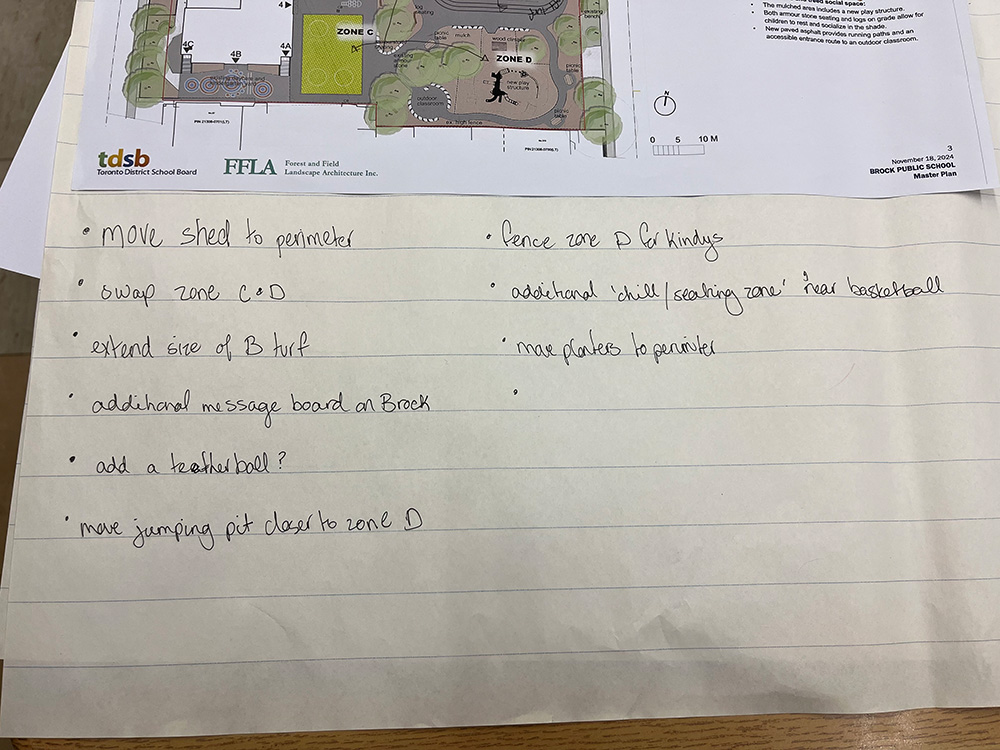 used social space:
• The mulched area includes a new play structure.
• Both armour stone seating and logs on grade allow for
children to rest and socialize in the shade.
• New paved asphalt provides running paths and an
accessible entrance route to an outdoor classroom.
log
seating
bench
ZONE C
picnic
table
mulch
wood climber
ZONE D
4C
4B
4A
new play
structure
picnic
table
outdoor
classroom
picnic
table
ex. high fence
N
0 5 10 M
tdsb
Toronto District School Board
FFLA
Forest and Field
Landscape Architecture Inc.
3
November 18, 2024
BROCK PUBLIC SCHOOL
Master Plan
• move shed to perimeter
• swap zone C & D
• extend size of B turf
• additional message board on Brock
• add a teatherball?
• move jumping pit closer to zone D
• fence zone D for Kindys
• additional 'chill/seating zone' near basketball
• move planters to perimiter
•